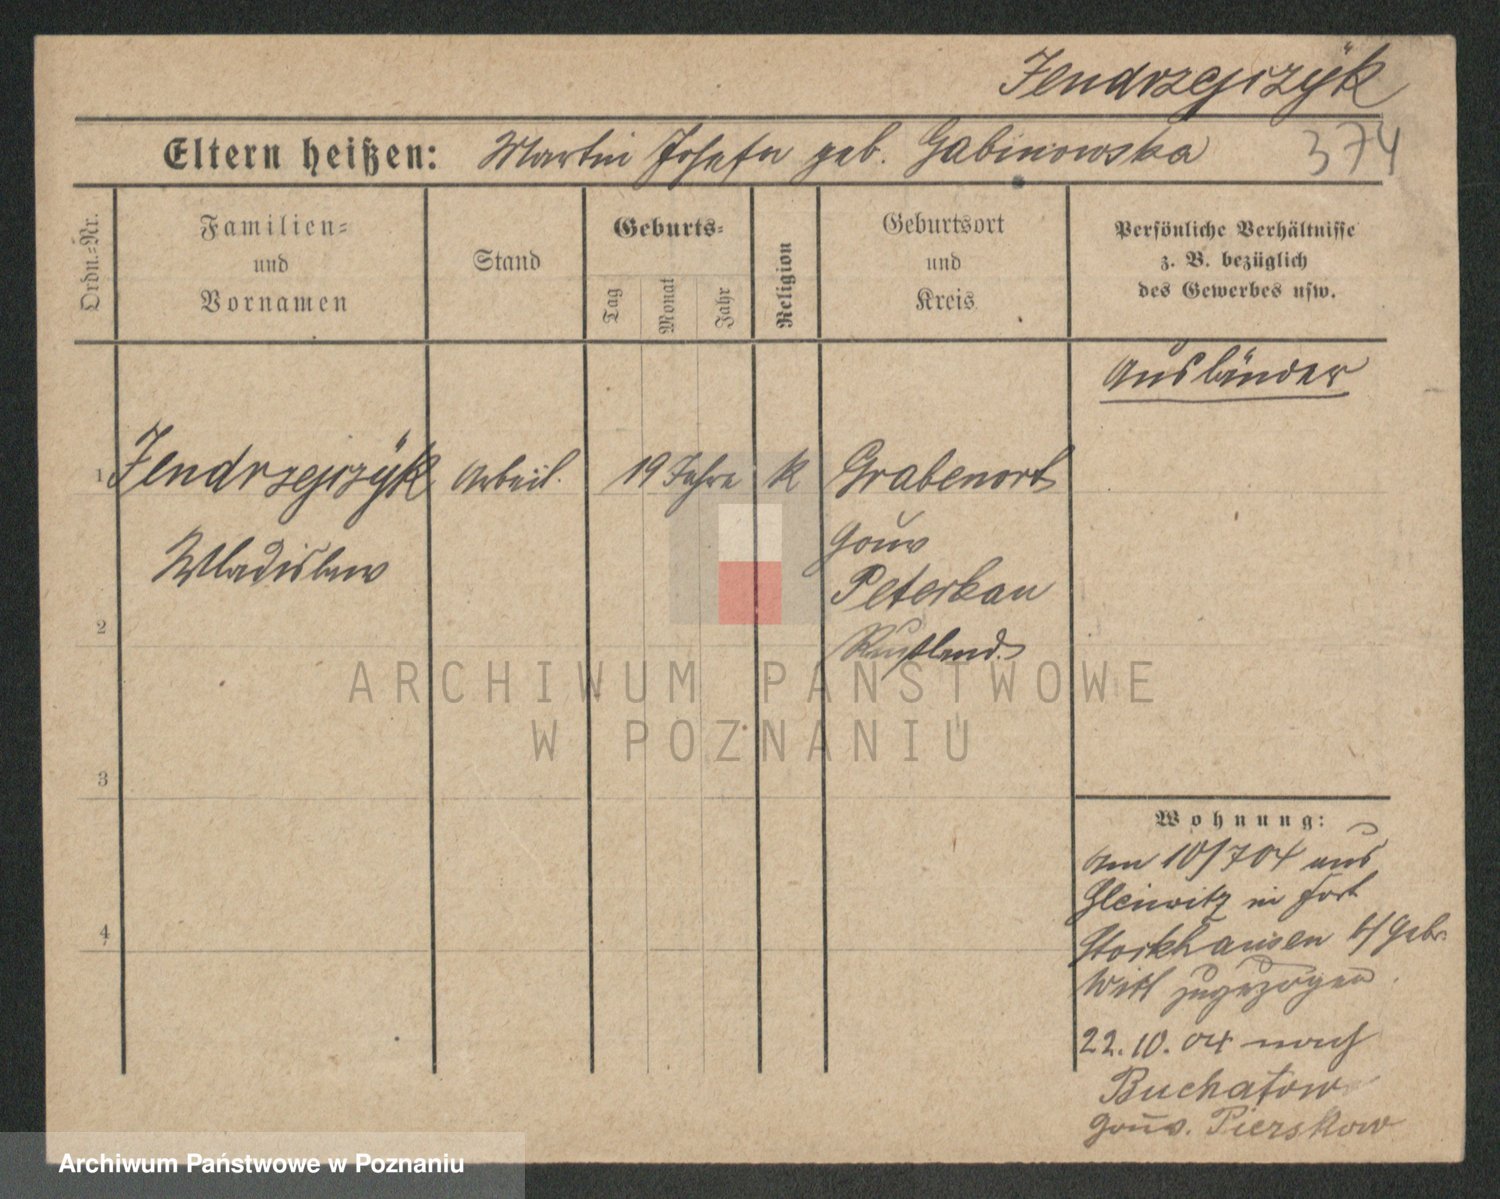 Jendrzejczÿk
Eltern heißen: Martin Josefa geb. Gabinowska 374
Ordn.=Nr.
Familien=
und
Vornamen
Stand
Geburts=
Tag
Monat
Jahr
Religion
Geburtsort
und
Kreis
Persönliche Verhältnisse
z. B. bezüglich
des Gewerbes usw.
Ausländer
1 Jendrzejczÿk Arbeit. 19 Jahre K Grabenort
Wladislaw
Gouv
Peterkau
Rußland.
2
3
4
Wohnung:
Am 10/7 04 aus
Gleiwitz in Fort
Storkhausen b/ Gebr
Witt zugezogen.
22.10.04 nach
Buchatow
Gouv. Pierskow
ARCHIWUM PAŃSTWOWE
W POZNANIU
Archiwum Państwowe w Poznaniu